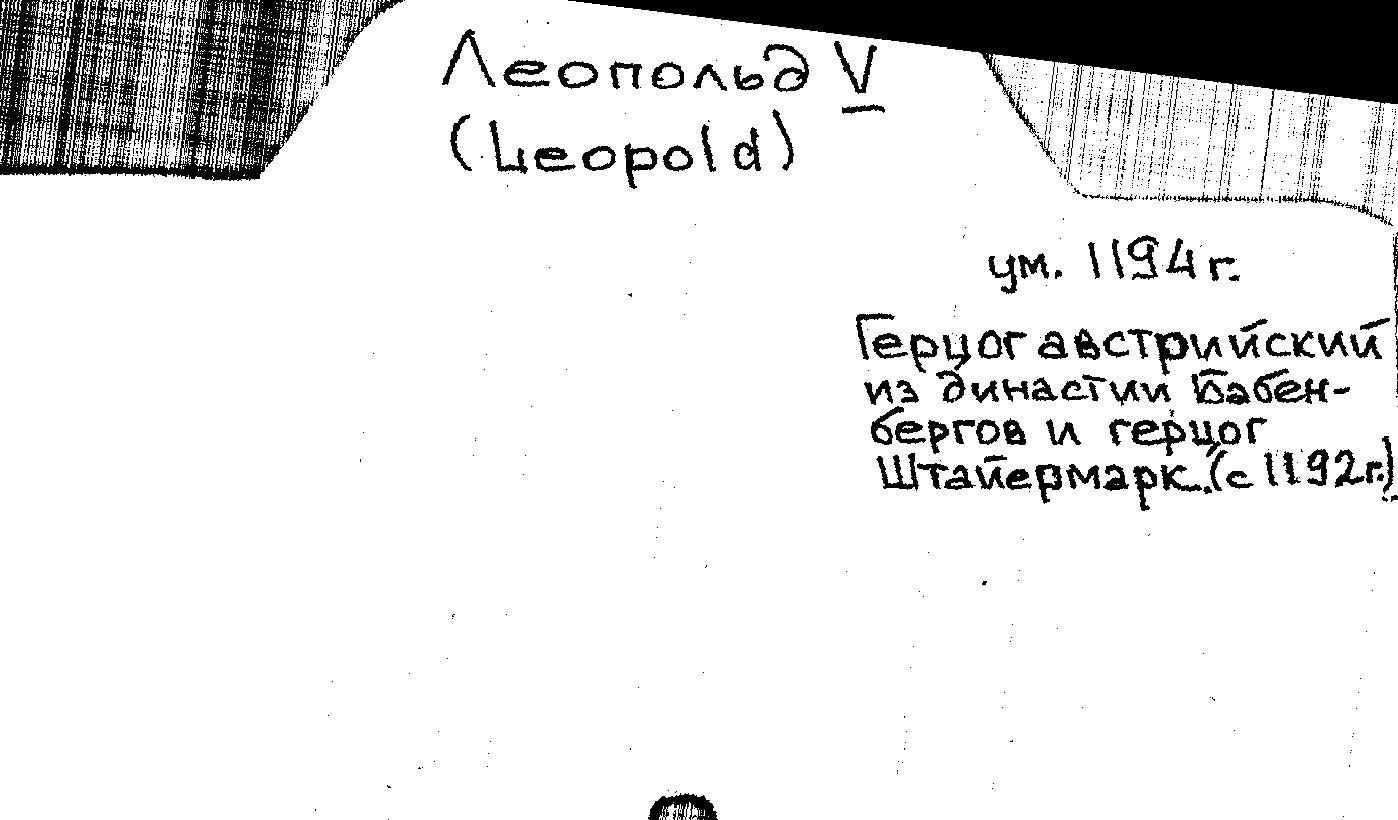 Леопольд V
(Leopold)
ум. 1194 г.
Герцог австрийский
из династии Бабен-
бергов и герцог
Штайермарк. (с 1192 г.)